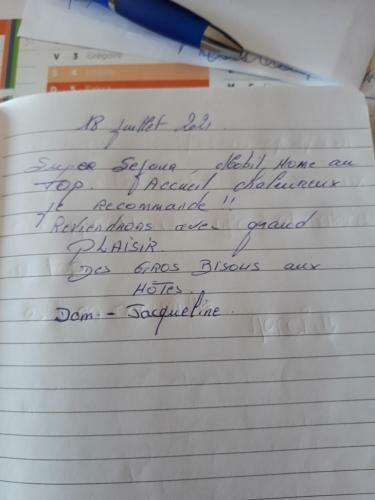 V 3 Grégoire
S 4
D 5
18 juillet 2021.
Super Sejour, Mobil Home au
TOP. Accueil chaleureux
je recommande !!
Reviendrons avec grand
PLAISIR.
Des GROS BISOUS aux
HÔTES.
Dom - Jacqueline.